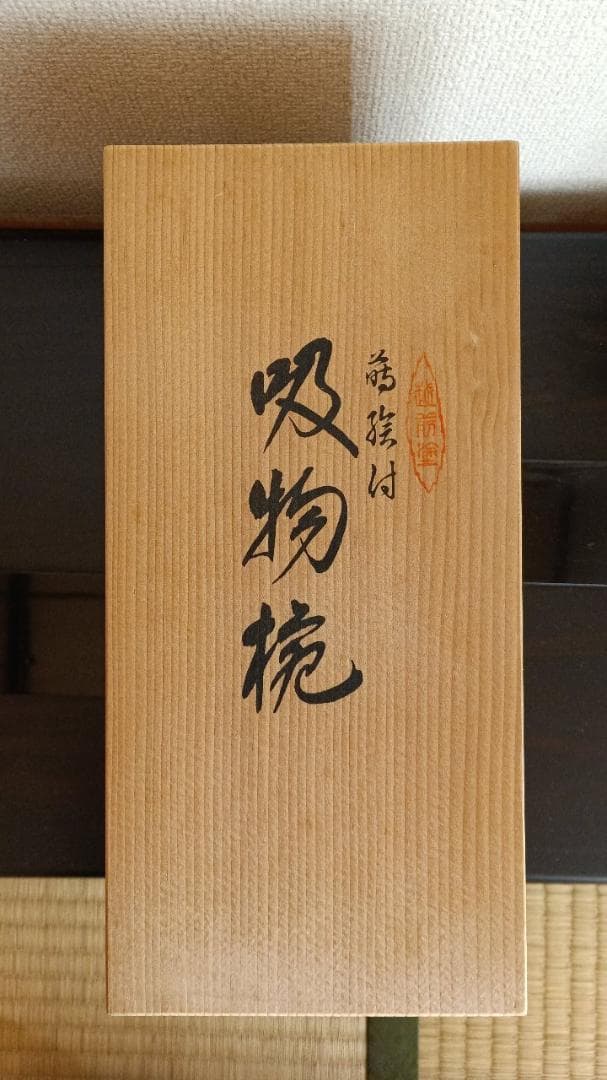 越前塗
蒔絵付
吸物椀